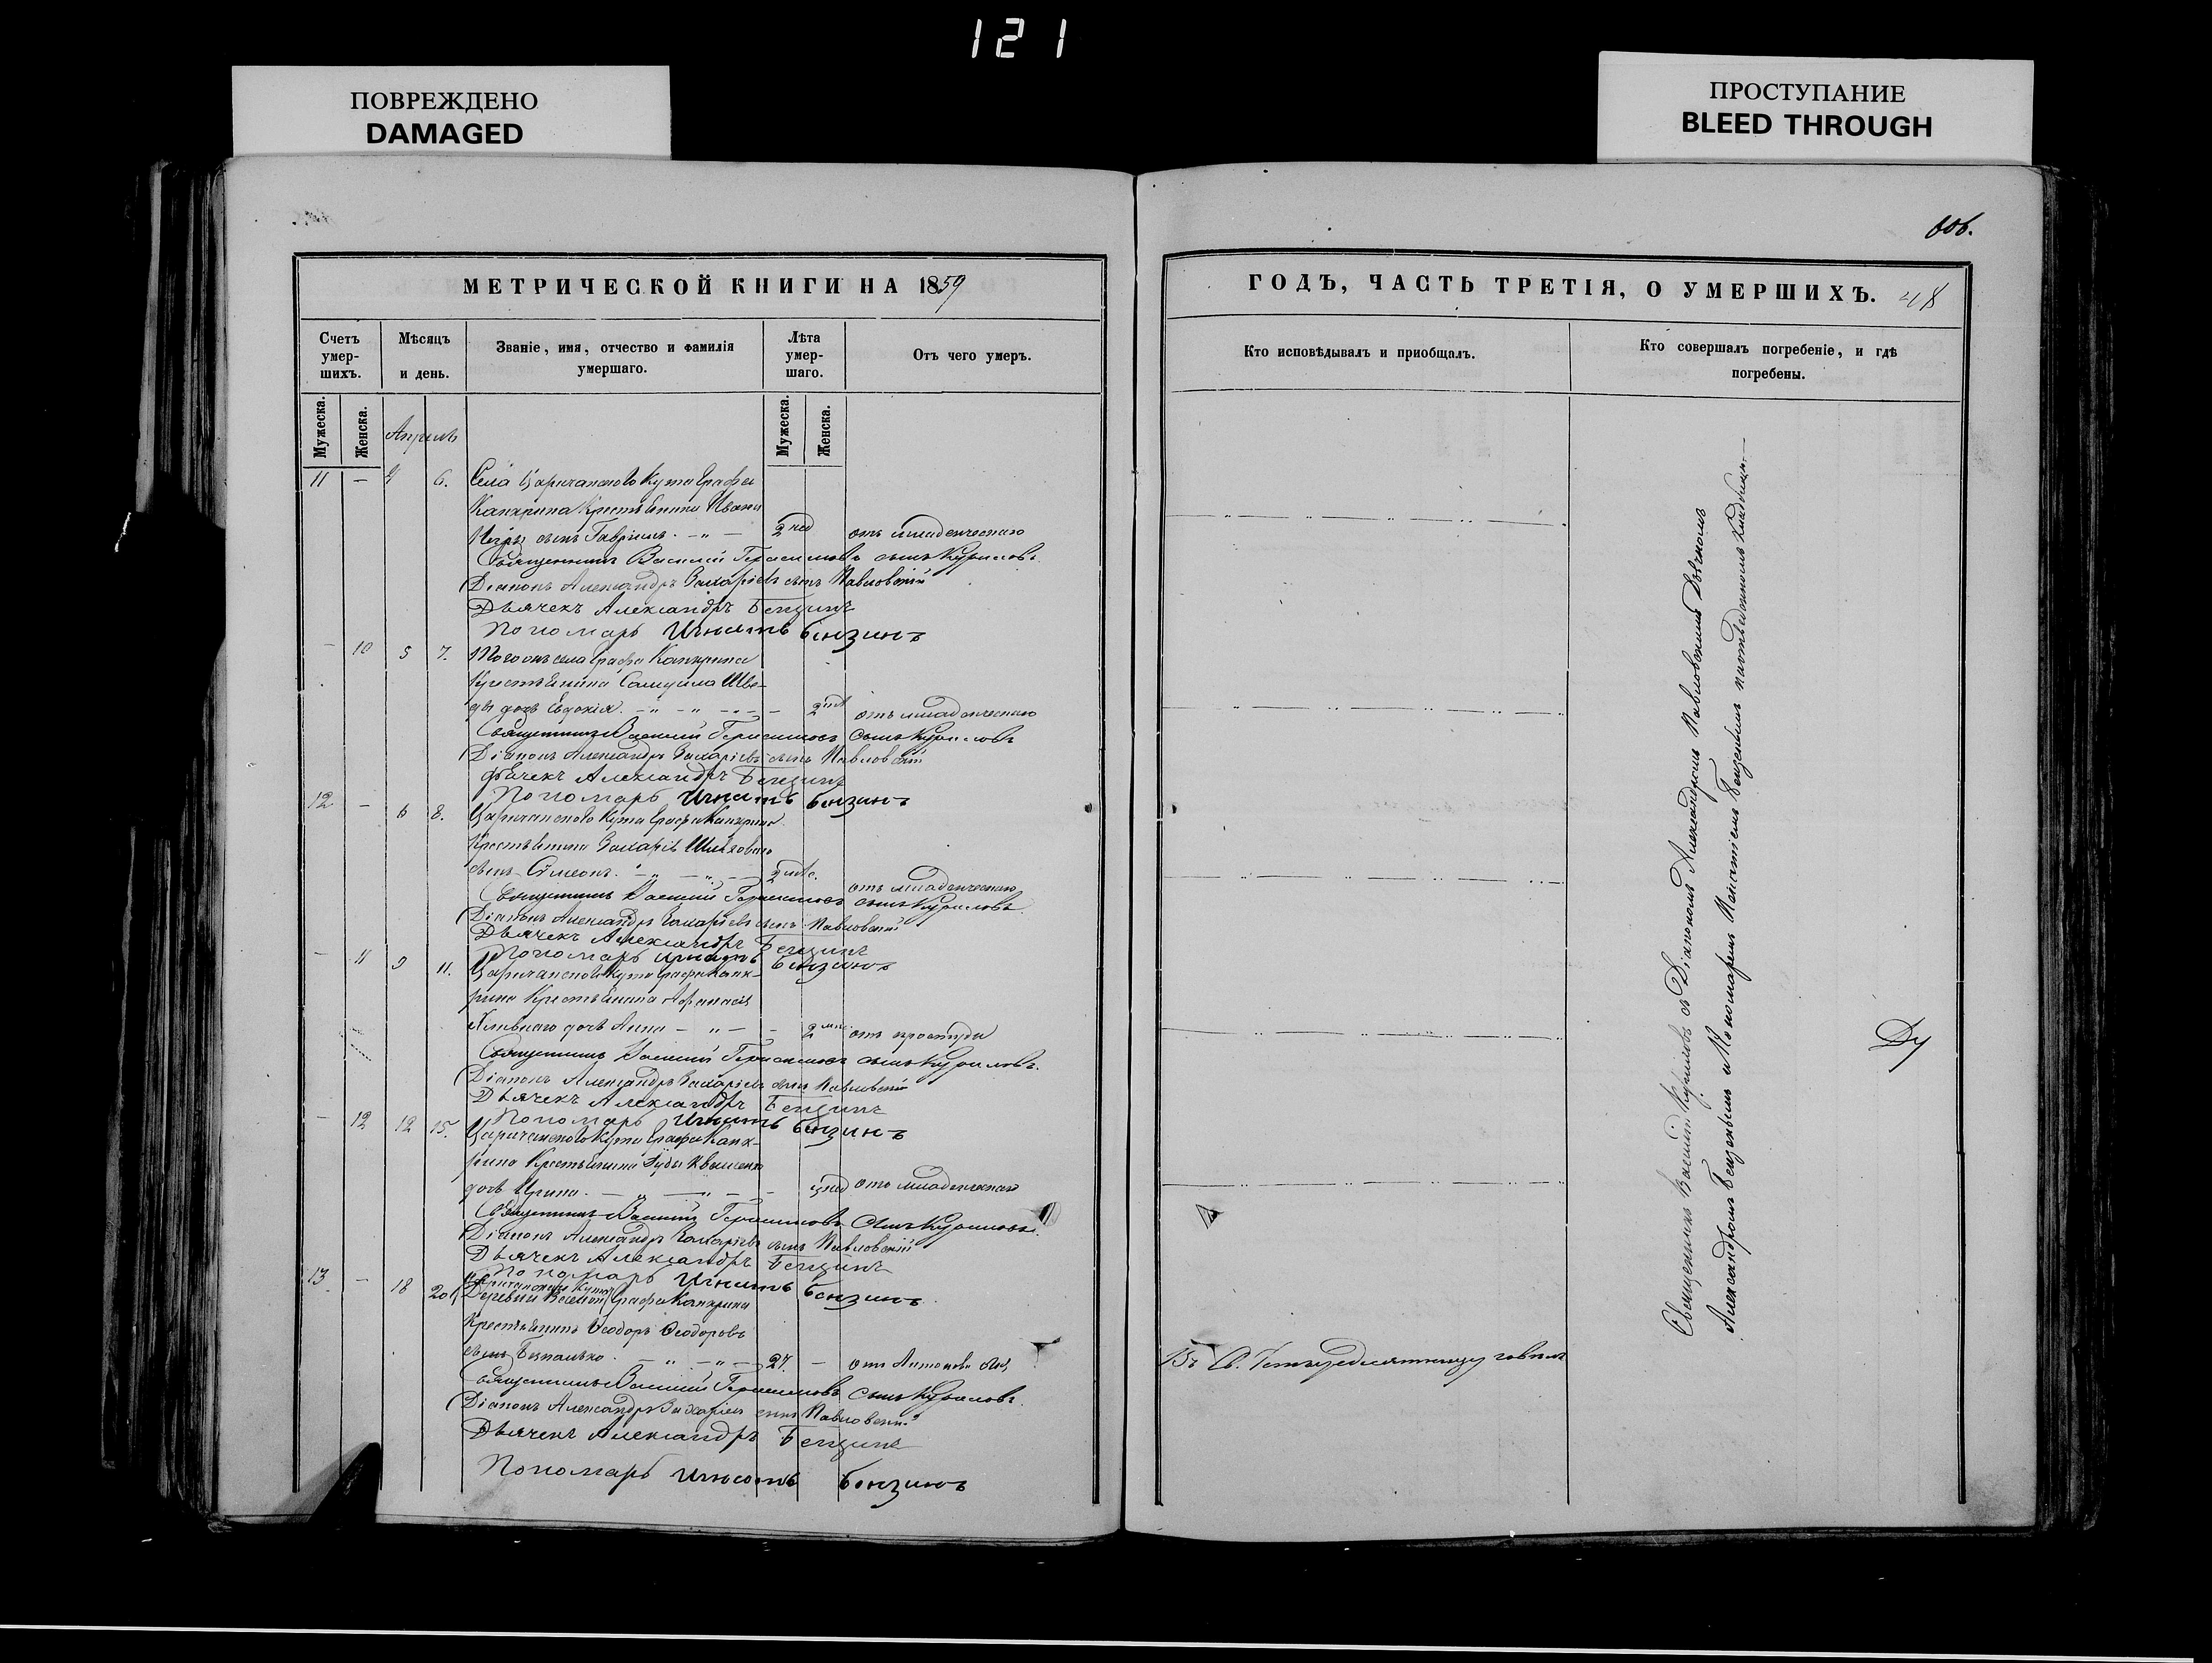 121
ПОВРЕЖДЕНО
DAMAGED
ПРОСТУПАНИЕ
BLEED THROUGH
МЕТРИЧЕСКОЙ КНИГИ НА 1859
Счетъ умер-шихъ.
Мѣсяцъ и день.
Званіе, имя, отчество и фамилія умершаго.
Лѣта умер-шаго.
Отъ чего умеръ.
Мужеска.
Женска.
Апрель
Мужеска.
Женска.
11 — 4 6. Села Царичанского Кута Графа
Канкрина Крестьянина Ивана
сынъ Гавріилъ 2 нед отъ младенческаго
Священникъ Василій Герасимовъ сынъ Куриловъ.
Діаконъ Александръ Захаріевъ сынъ Павловскій
Дьячекъ Александръ Бензинъ
Пономарь Игнатъ Бензинъ
— 10 5 7. Того онъ села Графа Канкрина
Крестьянина Самуила Шве-
ды дочь Евдокія 2 отъ младенческаго
Священникъ Василій Герасимовъ сынъ Куриловъ
Діаконъ Александръ Захаріевъ сынъ Павловскій
Дьячекъ Александръ Бензинъ
Пономарь Игнатъ Бензинъ
12 — 6 8. Царичанского Кута Графа Канкрина
Крестьянина Захарія
сынъ Симеонъ 2 отъ младенческаго
Священникъ Василій Герасимовъ сынъ Куриловъ
Діаконъ Александръ Захаріевъ сынъ Павловскій
Дьячекъ Александръ Бензинъ
Пономарь Игнатъ Бензинъ
— 11 9 11. Царичанского Кута Графа Канк-
рина Крестьянина Афанасія
дочь Анна 2 отъ простуды
Священникъ Василій Герасимовъ сынъ Куриловъ.
Діаконъ Александръ Захаріевъ сынъ Павловскій
Дьячекъ Александръ Бензинъ
Пономарь Игнатъ Бензинъ
— 12 12 15. Царичанского Кута Графа Канк-
рина Крестьянина
дочь Ирина нед отъ младенческаго
Священникъ Василій Герасимовъ сынъ Куриловъ.
Діаконъ Александръ Захаріевъ сынъ Павловскій
Дьячекъ Александръ Бензинъ
Пономарь Игнатъ Бензинъ
13 — 18 20 Царичанского Кута
Деревни Веселой Графа Канкрина
Крестьянинъ Ѳеодоръ Ѳеодоровъ
сынъ Безпалько 27. — отъ Антонова Огня
Священникъ Василій Герасимовъ сынъ Куриловъ.
Діаконъ Александръ Захаріевъ сынъ Павловскій
Дьячекъ Александръ Бензинъ
Пономарь Игнатъ Бензинъ
606.
ГОДЪ, ЧАСТЬ ТРЕТІЯ, О УМЕРШИХЪ. 48
Кто исповѣдывалъ и приобщалъ.
Кто совершалъ погребеніе, и гдѣ погребены.
Въ Св. Четыредесятницу говѣлъ
Священникъ Василій Куриловъ съ Діакономъ Александромъ Павловскимъ Дьячкомъ
Александромъ Бензинымъ и Пономаремъ Игнатіемъ Бензинымъ на отведенномъ Кладбищѣ.